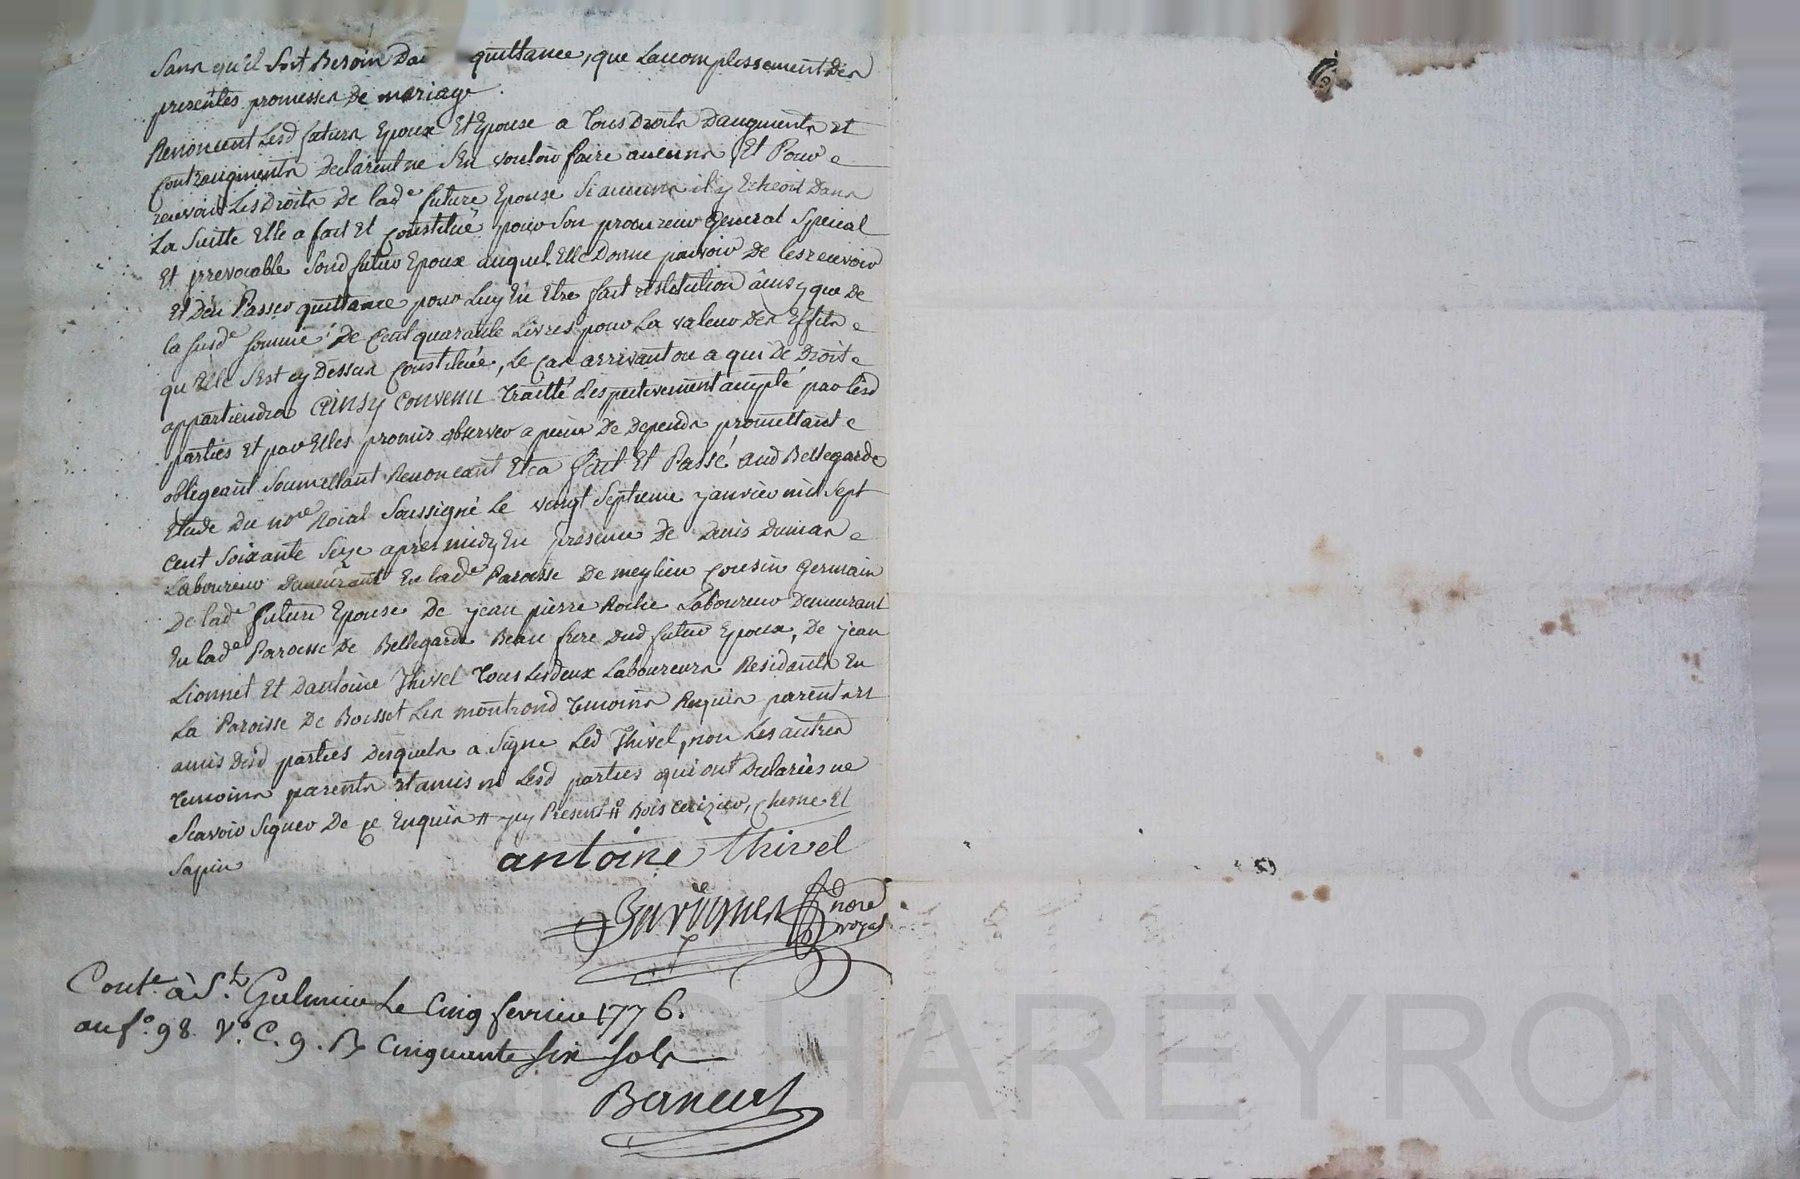 Sans qu'il Soit Besoin Dau quittance, que Lacomplissement Des
presentes promesses De mariage.
Renoncent Lesd futurs Epoux Et Epouse a Tous Droits Daugments et
Contraugments Declarent ne S'En vouloir faire aucuns, Et Pour
recevoir Les Droits De lade future Epouse Si aucuns il y Echeoit Dans
La Suitte Elle a fait Et Constitué pour Son procureur General Special
Et irrevocable Sond futur Epoux auquel Elle Donne pouvoir De les recevoir
Et D'En Passer quittance pour Luy En Etre fait restitution ainsy que De
la susde somme De Cent quarante Livres pour La valeur Des Effets
qu'Elle S'Est cy Dessus Constituée, Le Cas arrivant ou a qui De Droit
appartiendra Ainsy Convenu Traitté Respectivement accepté par Lesd
parties Et par Elles promis observer a peine De Depends promettant
obligeant Soumettant Renonceant Etca fait Et Passé aud Bellegarde
Etude Du nore Roial Soussigné Le vingt Septieme janvier mil Sept
Cent Soixante Seze apres midy En presence De Denis Dumas
Laboureur Demeurant En lade Paroisse De meylieu Cousin Germain
De lade future Epouse De jean pierre Roche Laboureur Demeurant
En lade Paroisse De Bellegarde Beau frere Dud futur Epoux, De jean
Lionnet Et Dantoine Thivel Tous Lesdeux Laboureurs Residants En
La Paroisse De Boisset Les montrond Temoins Requis parents et
amis Desd parties Desquels a Signe Led Thivel, non Les autres
Temoins parents Et amis ni Lesd parties qui ont Declarées ne
Scavoir Signer De ce Enquis # y Present # Bois Cerizier, Chesne Et
Sapin
antoine Thivel
nore royal
Conte. à St. Galmier Le Cinq fevrier 1776.
au fo. 98. Vo. C. 9. R Cinquante six sols
CHAREYRON